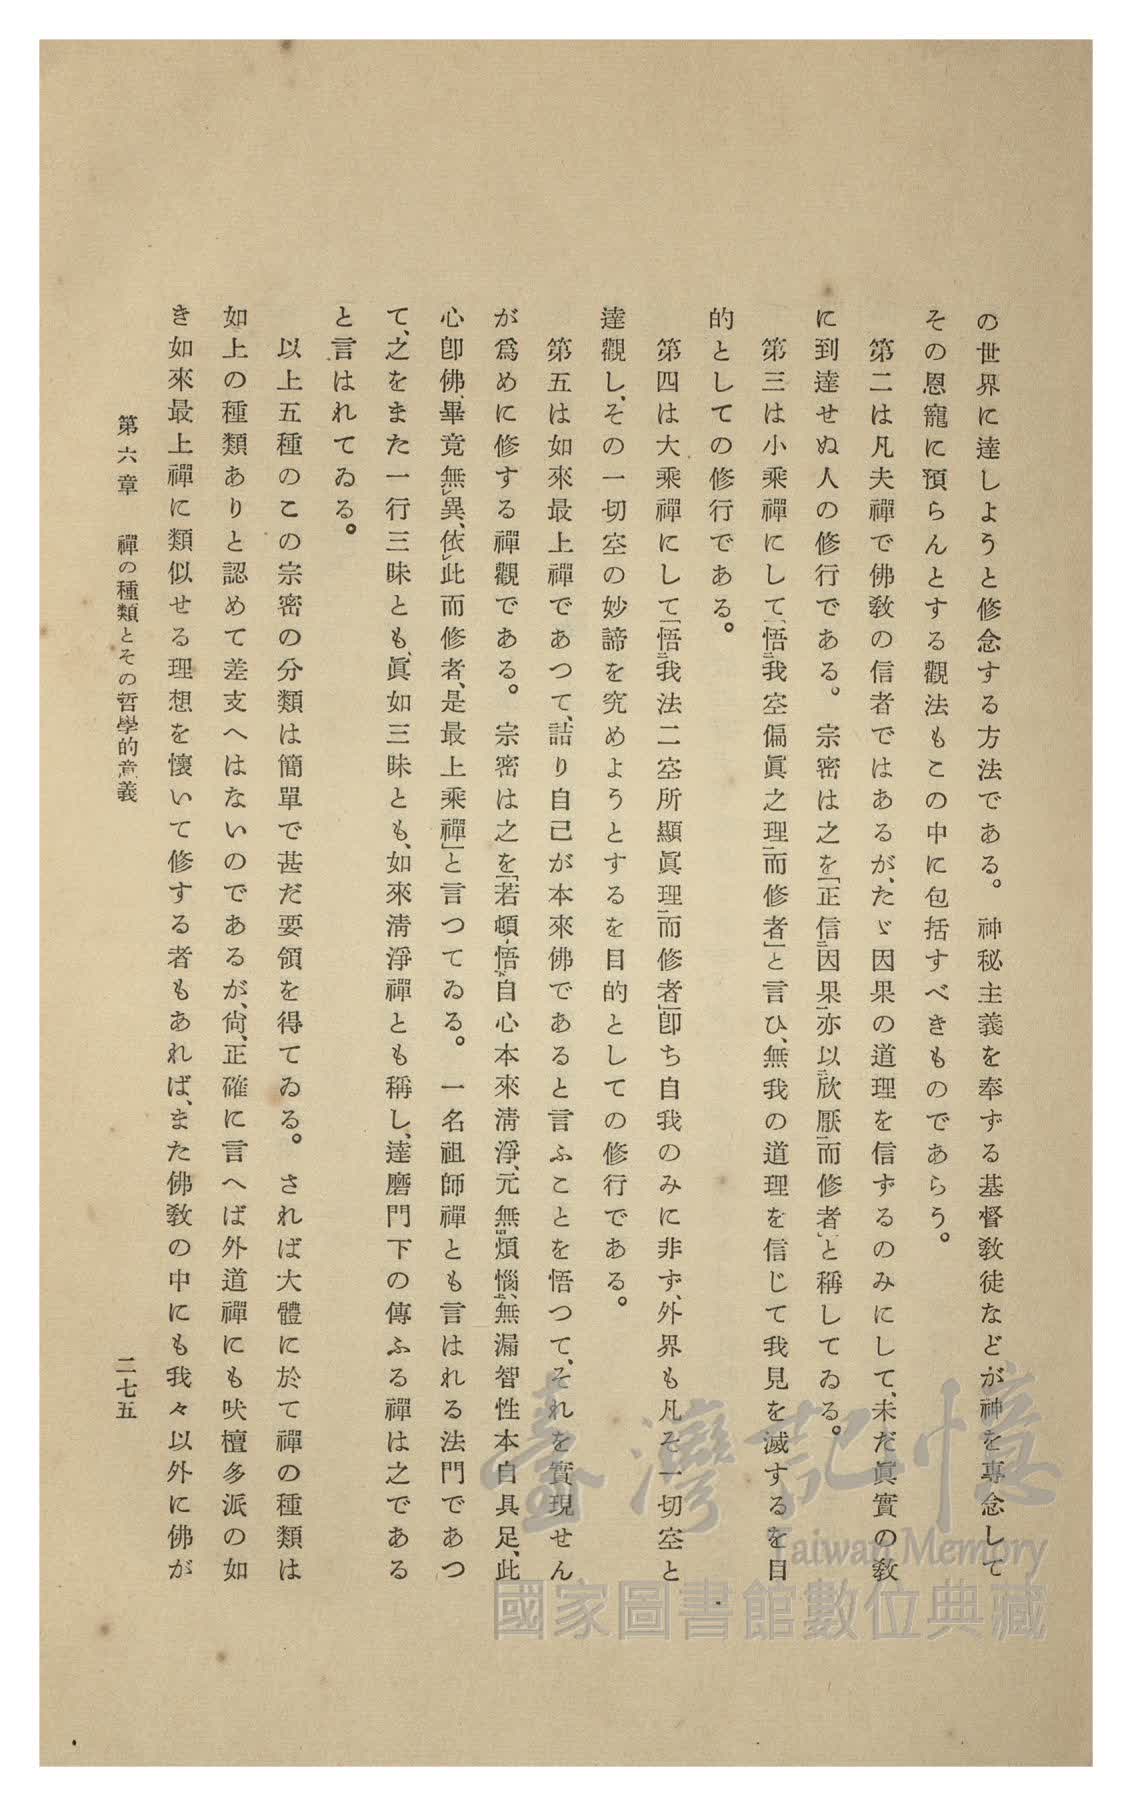 の世界に達しようと修念する方法である。神秘主義を奉ずる基督敎徒などが神を專念して
その恩寵に預らんとする觀法もこの中に包括すべきものであらう。
第二は凡夫禪で佛敎の信者ではあるが、たゞ因果の道理を信ずるのみにして、未だ眞實の敎
に到達せぬ人の修行である。宗密は之を「正信二因果一亦以二欣厭一而修者」と稱してゐる。
第三は小乘禪にして「悟二我空偏眞之理一而修者」と言ひ、無我の道理を信じて我見を滅するを目
的としての修行である。
第四は大乘禪にして「悟二我法二空所顯眞理一而修者」卽ち自我のみに非ず、外界も凡そ一切空と
達觀し、その一切空の妙諦を究めようとするを目的としての修行である。
第五は如來最上禪であつて、詰り自己が本來佛であると言ふことを悟つて、それを實現せん
が爲めに修する禪觀である。宗密は之を「若頓悟自心本來淸淨、元無煩惱、無漏智性本自具足、此
心卽佛、畢竟無レ異、依レ此而修者、是最上乘禪」と言つてゐる。一名祖師禪とも言はれる法門であつ
て、之をまた一行三昧とも、眞如三昧とも、如來淸淨禪とも稱し、達磨門下の傳ふる禪は之である
と言はれてゐる。
以上五種のこの宗密の分類は簡單で甚だ要領を得てゐる。されば大體に於て禪の種類は
如上の種類ありと認めて差支へはないのであるが、尙、正確に言へば外道禪にも吠檀多派の如
き如來最上禪に類似せる理想を懷いて修する者もあれば、また佛敎の中にも我々以外に佛が
第六章 禪の種類とその哲學的意義
二七五
臺灣記憶
Taiwan Memory
國家圖書館數位典藏